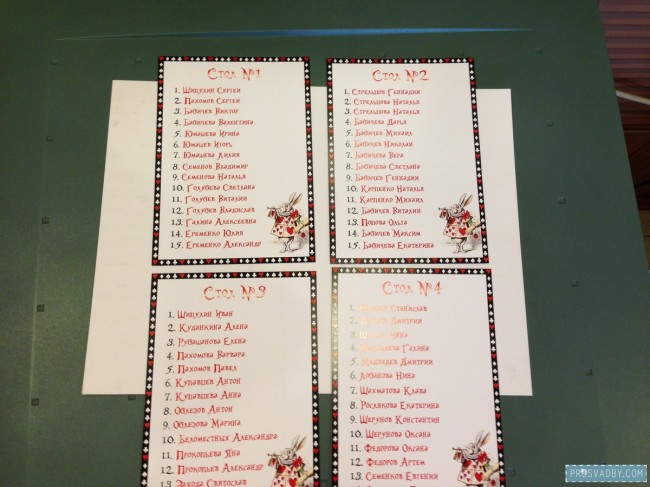 Стол №1
1. Шицулин Сергей
2. Пахомов Сергей
3. Бабичев Виктор
4. Бабичева Валентина
5. Юмашева Ирина
6. Юмашев Игорь
7. Юмашева Лилия
8. Семенов Владимир
9. Семенова Наталья
10. Голубева Светлана
11. Голубев Виталий
12. Голубев Владислав
13. Галина Алексеевна
14. Еременко Юлия
15. Еременко Александр
Стол №2
1. Стрельцов Геннадий
2. Стрельцова Наталья
3. Стрельцова Наталья
4. Бабичева Дарья
5. Бабичев Михаил
6. Бабичев Николай
7. Бабичева Вера
8. Бабичева Светлана
9. Бабичев Геннадий
10. Карпенко Наталья
11. Карпенко Михаил
12. Бабичев Виталий
13. Попова Ольга
14. Бабичев Максим
15. Бабичева Екатерина
Стол №3
1. Шицулин Иван
2. Куданкина Алена
3. Елена
4. Пахомова Варвара
5. Пахомов Павел
6. Купавцев Антон
7. Купавцева Анна
8. Антон
9. Марина
10. Беломестных Александра
11. Прокопьева Яна
12. Прокопьев Александр
13. Святослав
Стол №4
1. Станислав
2. Дмитрий
3.
4. Галина
5. Дмитрий
6. Лобанова Нина
7. Шахматова Клава
8. Рослякова Екатерина
9. Шерунов Константин
10. Шерунова Оксана
11. Федорова Оксана
12. Федоров Артем
13. Семенков Евгений
PROSVADBY.COM